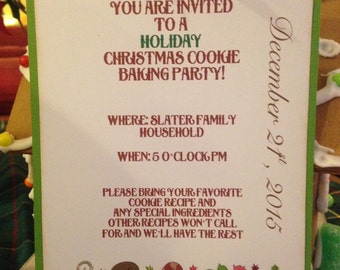 YOU ARE INVITED
TO A
HOLIDAY
CHRISTMAS COOKIE
BAKING PARTY!
WHERE: SLATER FAMILY
HOUSEHOLD
WHEN: 5 O'CLOCK PM
PLEASE BRING YOUR FAVORITE
COOKIE RECIPE AND
ANY SPECIAL INGREDIENTS
OTHER RECIPES WON'T CALL
FOR AND WE'LL HAVE THE REST
December 21st, 2015